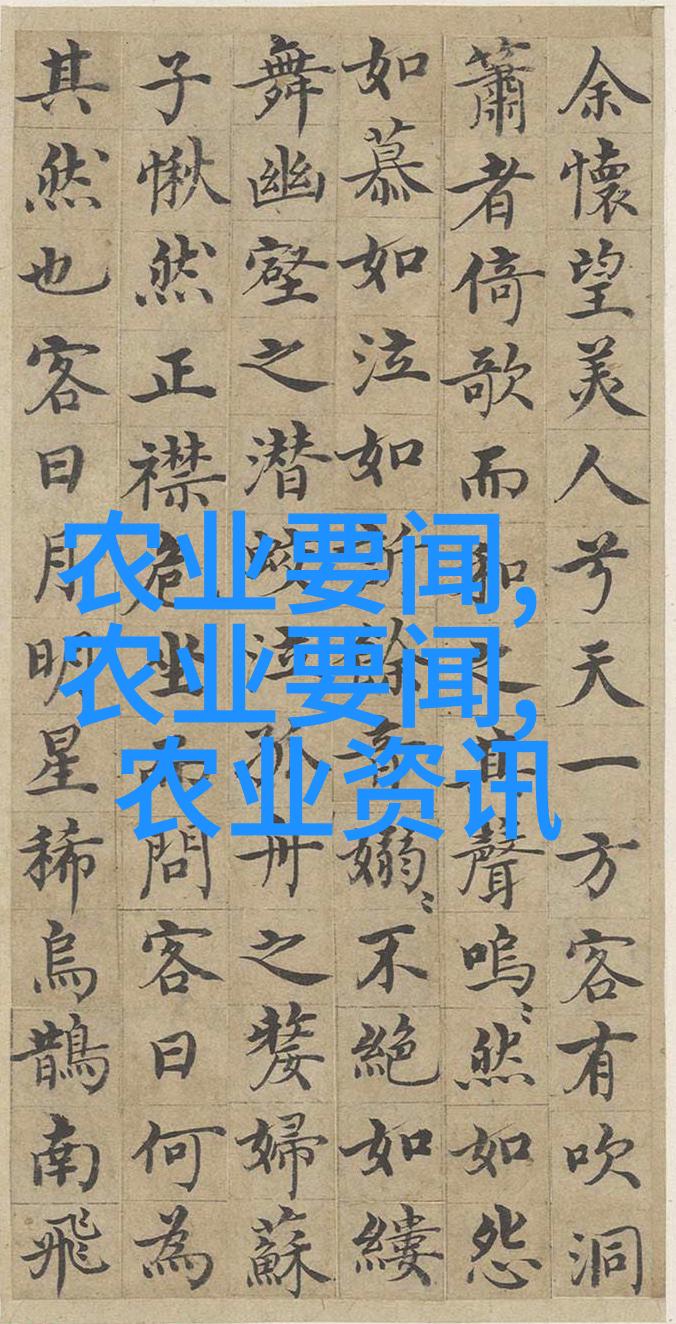 余懷望美人兮天一方客有吹洞
簫者倚歌而和之其聲嗚〻然如怨
如慕如泣如訴餘音嫋〻不絶如縷
舞幽壑之潜蛟泣孤舟之嫠婦蘇
子愀然正襟危坐而問客曰何為
其然也客曰月明星稀烏鵲南飛
农业要闻,
农业要闻,
农业资讯